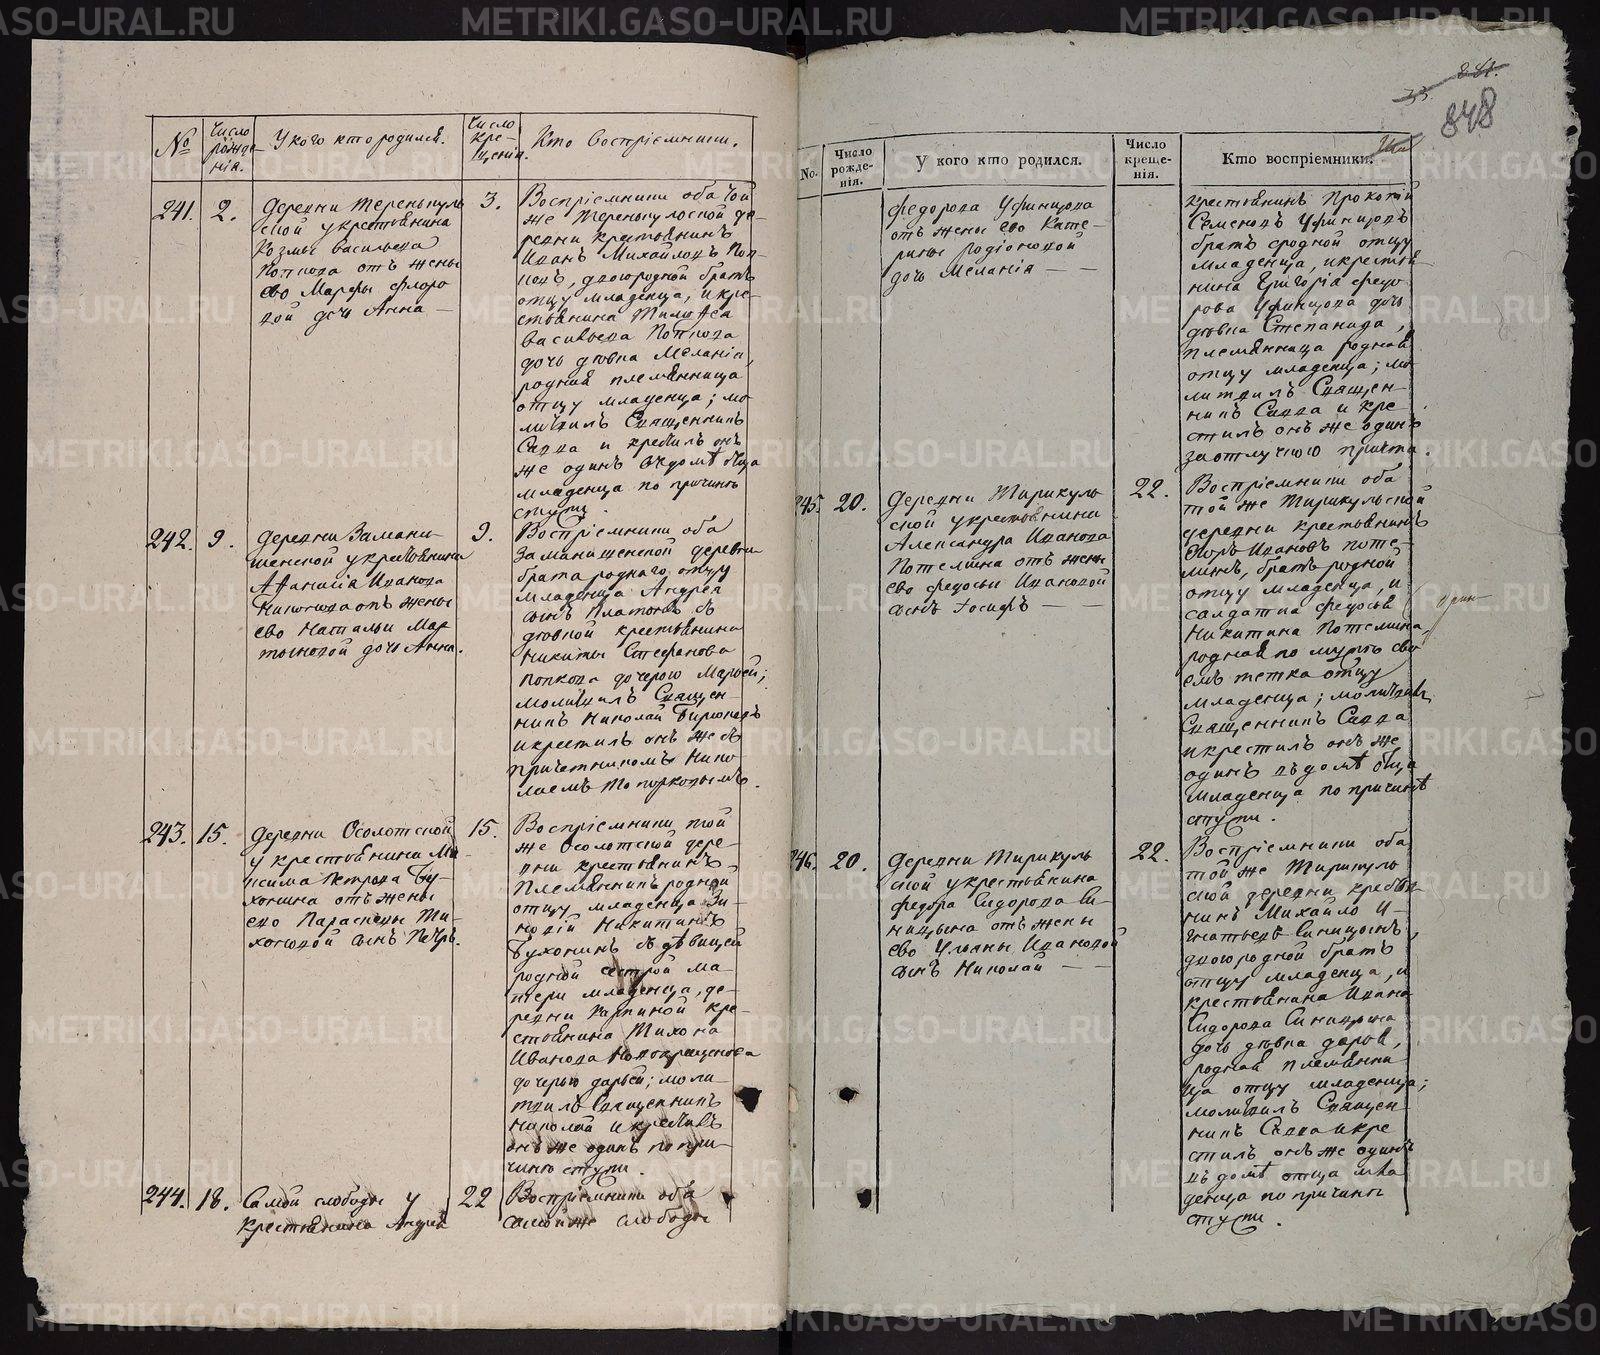 №
Число рожде-нія.
У кого кто родился.
Число кре-щенія.
Кто воспріемники.
241.
2.
Деревни Теренкуль
ской у крестьянина
Козмы Васильева
Попкова отъ жены
его Марфы
вой дочь Анна —
3.
Воспріемники оба той
же Теренкульской де-
ревни крестьянинъ
Иванъ Михайловъ Поп-
ковъ, двоюродной братъ
отцу младенца, и кре-
стьянина
Васильева Попкова
дочь девка Меланія,
родная племянница
отцу младенца; мо-
литвилъ Священникъ
Савва и крестилъ онъ
же одинъ въ домѣ отца
младенца по причинѣ
стужи.
242.
9.
Деревни Замани-
шенской у крестьянина
Афанасія Иванова
отъ жены
его Натальи Мар
тыновой дочь Анна.
9.
Воспріемники оба
Заманишенской деревни
брата роднаго отцу
младенца Андрея
сынъ Платонъ съ
девкой крестьянина
Никиты Стефанова
Попкова дочерью Марьей;
молитвилъ Священ-
никъ Николай Бирюковъ
и крестилъ онъ же съ
причетникомъ Нико
лаемъ Топорковымъ.
243.
15.
Деревни Осолотской
у крестьянина Ма-
ксима Петрова Бу-
хонина отъ жены
его Параскевы Ти-
хоновой сынъ Петръ.
15.
Воспріемники той
же Осолотской дере-
вни крестьянинъ
племянникъ родной
отцу младенца Зи-
новій Никитинъ
Бухонинъ съ дѣвицей
родной сестрой ма-
тери младенца, де-
ревни кре-
стьянина Тихона
Иванова Новокрещенова
дочерью Дарьей; моли-
твилъ Священникъ
Николай и крестилъ
онъ же одинъ по при-
чинѣ стужи.
244.
18.
Самой слободы у
крестьянина Андрея
22
Воспріемники оба
самой же слободы
848
No.
Число рожде-нія.
У кого кто родился.
Число креще-нія.
Кто воспріемники.
Федорова Уфинцова
отъ жены его Кате-
рины Родіоновой
дочь Меланія — —
крестьянинъ Прокопій
Семеновъ Уфинцовъ
братъ сродной отцу
младенца, и крестья-
нина Григорія Федо
рова Уфинцова дочь
девка Степанида,
племянница родная
отцу младенца; мо-
литвилъ Священ-
никъ Савва и кре-
стилъ онъ же одинъ
за отлучкою причта.
245.
20.
Деревни Тирикуль
ской у крестьянина
Александра Иванова
Потемкина отъ жены
его Федосьи Ивановой
сынъ Іосифъ — —
22.
Воспріемники оба
той же Тирикульской
деревни крестьянинъ
Егоръ Ивановъ Поте-
минъ, братъ родной
отцу младенца, и
салдатка Федосья
Никитина Потемкина,
родная по мужѣ сво
емъ тетка отцу
младенца; молитвилъ
Священникъ Савва
и крестилъ онъ же
одинъ въ домѣ отца
младенца по причинѣ
стужи.
246.
20.
Деревни Тирикуль
ской у крестьянина
Федора Сидорова Си-
ницына отъ жены
его Ульяны Ивановой
сынъ Николай — —
22.
Воспріемники оба
той же Тирикуль
ской деревни крестья-
нинъ Михайло И-
гнатьевъ Синицынъ,
двоюродной братъ
отцу младенца, и
крестьянина Ивана
Сидорова Синицына
дочь девка Дарья,
родная племянни
ца отцу младенца;
молитвилъ Священ-
никъ Савва и кре
стилъ онъ же одинъ
въ домѣ отца мла
денца по причинѣ
стужи.